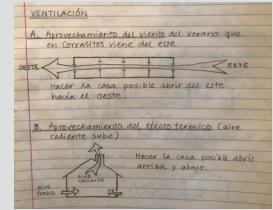 VENTILACIÓN
A. Aprovechamiento del viento del verano que
en Corralitos viene del este.
OESTE
ESTE
Hacer la casa posible abrir del este
hacia el oeste.
B. Aprovechamiento del efecto termico (aire
caliente sube)
Hacer la casa posible abrir
arriba y abajo.
aire
caliente
aire
fresco